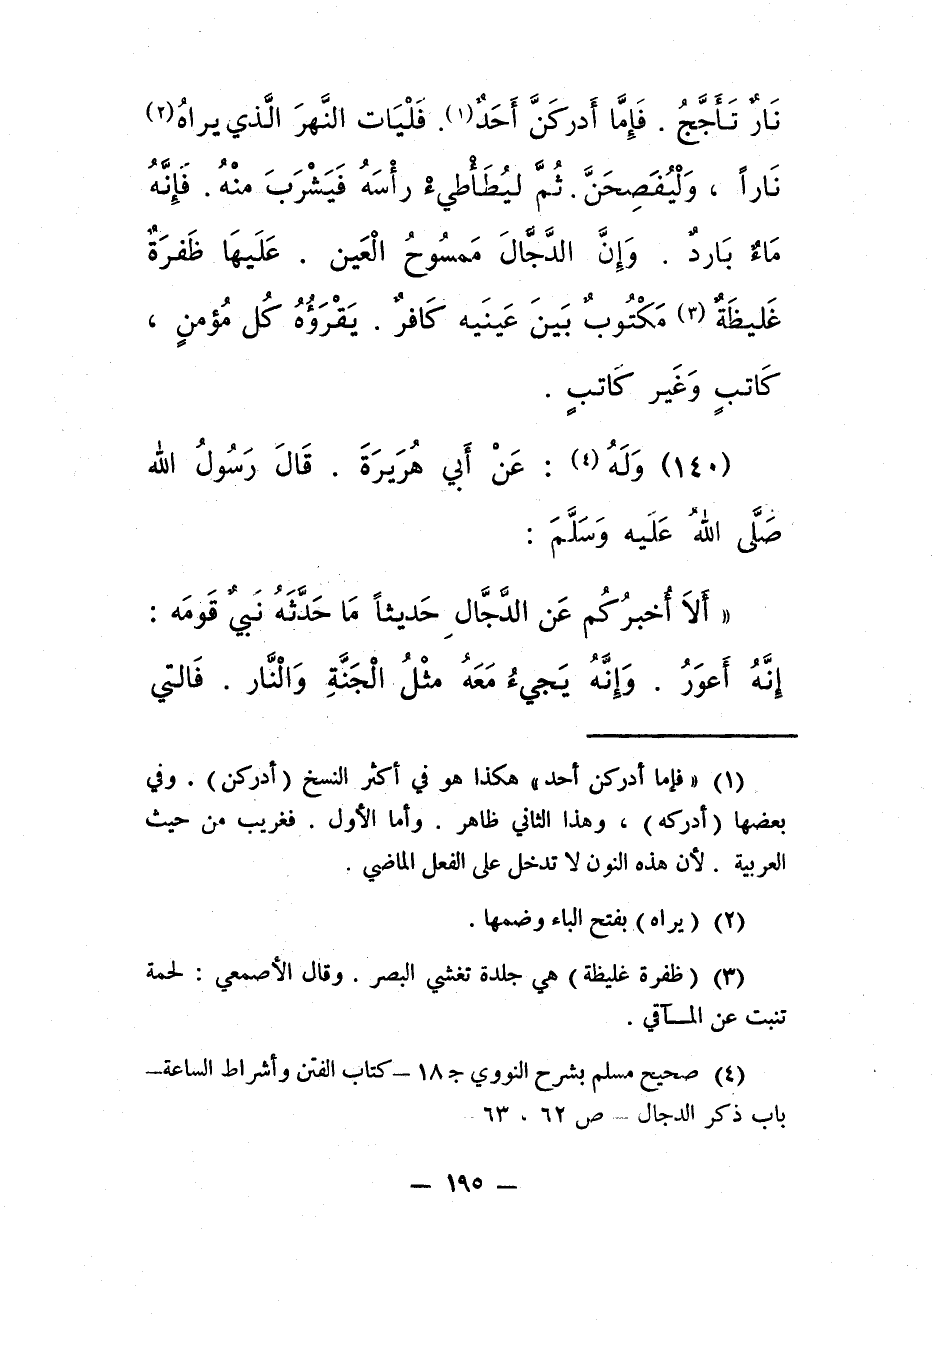 نَارٌ تَأَجَّجُ . فَإِمَّا أَدركَنَّ أَحَدٌ(١). فَلْيَات النَّهرَ الَّذي يراهُ(٢)
نَاراً ، وَلْيُفَصِحَنَّ. ثُمَّ ليُطَأْطيءْ رأْسَهُ فَيَشْرَبَ منْهُ. فَإِنَّهُ
مَاءٌ بَاردٌ . وَإِنَّ الدَّجَّالَ مَمسُوحُ الْعَين . عَلَيهَا ظَفرَةٌ
غَليظَةٌ (٣) مَكْتُوبٌ بَينَ عَينَيه كَافرٌ . يَقْرَؤُهُ كُل مُؤمنٍ ،
كَاتبٍ وَغَير كَاتبٍ .
(١٤٠) وَلَهُ (٤) : عَنْ أَبي هُرَيرَةَ . قَالَ رَسُولُ الله
صَلَّى اللهُ عَلَيه وَسَلَّمَ :
« أَلاَ أُخبرُكُم عَن الدَّجَّالِ حَديثاً مَا حَدَّثَهُ نَبيٌ قَومَه :
إِنَّهُ أَعوَرُ . وَإِنَّهُ يَجيءُ مَعَهُ مثْلُ الْجَنَّةِ وَالْنَّار . فَالتي
(١) « فإما أدركن أحد» هكذا هو في أكثر النسخ (أدركن) . وفي
بعضها (أدركه) ، وهذا الثاني ظاهر . وأما الأول . فغريب من حيث
العربية . لأن هذه النون لا تدخل على الفعل الماضي .
(٢) (يراه) بفتح الباء وضمها .
(٣) (ظفرة غليظة) هي جلدة تغشي البصر . وقال الأصمعي : لحمة
تنبت عن المــآقي .
(٤) صحيح مسلم بشرح النووي جـ ١٨ – كتاب الفتن وأشراط الساعة –
باب ذكر الدجال – ص ٦٢ . ٦٣
– ١٩٥ –